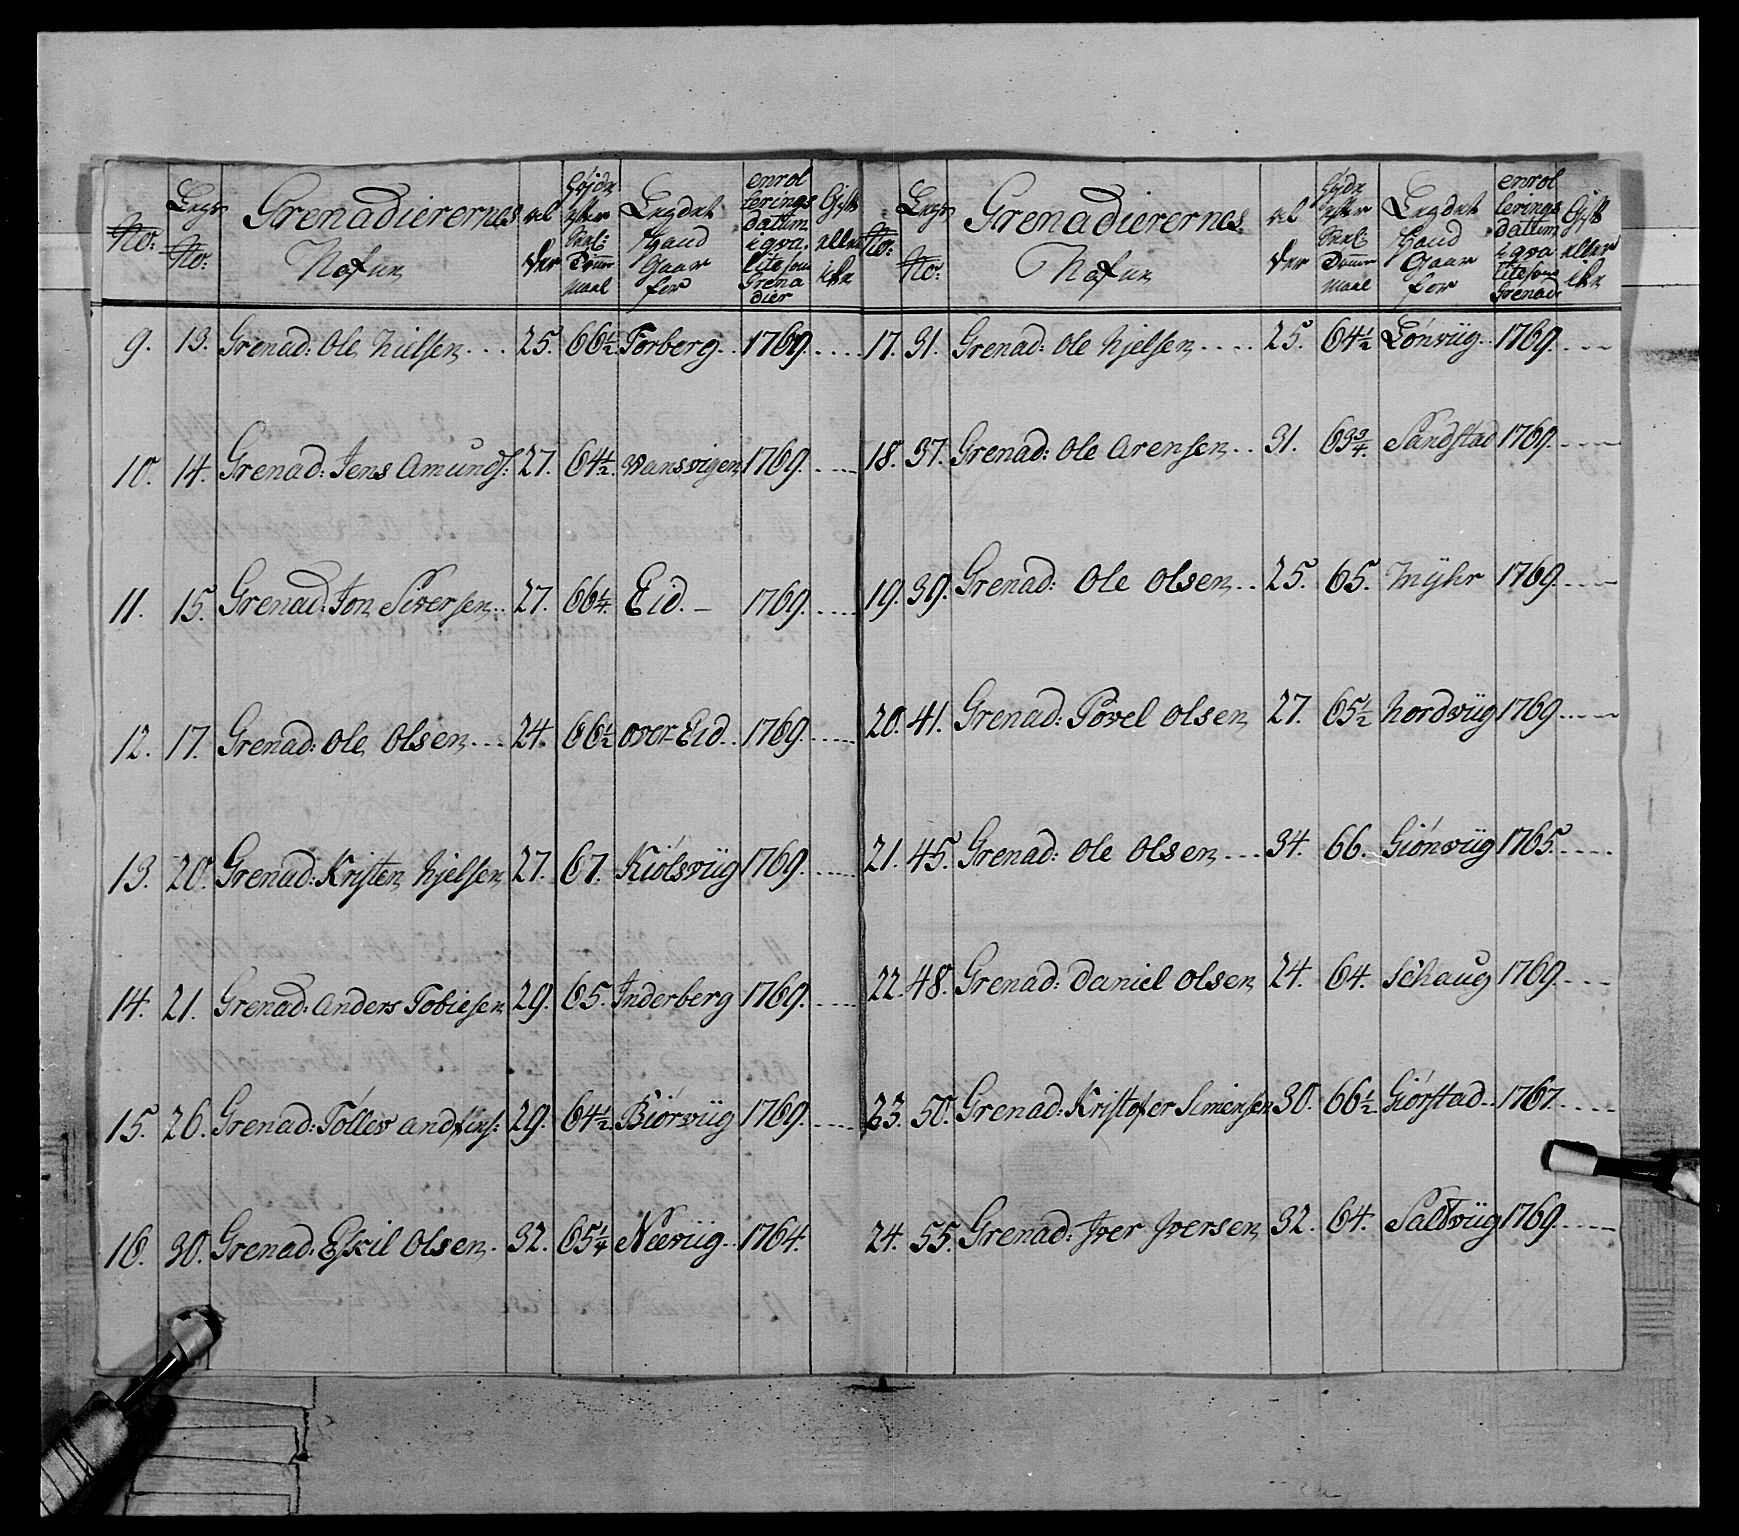 No: Legs No: Grenadierernes Nafne al der Höjde efter Maal Legdet Hand Gaar for enrol lerings datum i qva lite som Grena dier Gift eller ike
9. 13. Grenad: Ole Nielsen ... 25. 66½ Forberg .. 1769. ....
10. 14. Grenad: Jens Amunds: 27. 64½ Wansvigen 1769. ....
11. 15. Grenad: Jon Siversen .. 27. 66¼ Eid. – 1769. ....
12. 17. Grenad: Ole Olsen ... 24. 66½ over Eid .. 1769. ....
13. 20. Grenad: Kristen Njelsen 27. 67. Kiölsviig 1769. ....
14. 21. Grenad: Anders Tobiesen 29. 65. Inderberg 1769. ....
15. 26. Grenad: Töllev Anders: 29. 64½ Biörviig 1769. ....
16. 30. Grenad: Eskil Olsen . 32. 65¼ Neeviig .. 1764.
No: Legs No: Grenadierernes Nafne al der Höjde efter Maal Legdet Hand Gaar for enrol lerings datum i qva lite som Grenad: Gift eller ike
17. 31. Grenad: Ole Njelsen .... 25. 64½ Lönviig .. 1769. ....
18. 37. Grenad: Ole Arensen .. 31. 63¾ Sandstad 1769. ....
19. 39. Grenad: Ole Olsen .. 25. 65. Mÿhr 1769. ....
20. 41. Grenad: Povel Olsen 27. 65½ Nordviig 1769. ....
21. 45. Grenad: Ole Olsen ... 34. 66. Giönviig 1765. ....
22. 48. Grenad: Daniel Olsen 24. 64. Schaug 1769. ....
23. 50. Grenad: Kristofer Simensen 30. 66½ Giörstad .. 1767. ....
24. 55. Grenad: Iver Iversen 32. 64. Saltviig 1769. ....